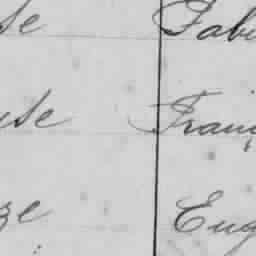 se Fab
use Franç
ze Eug